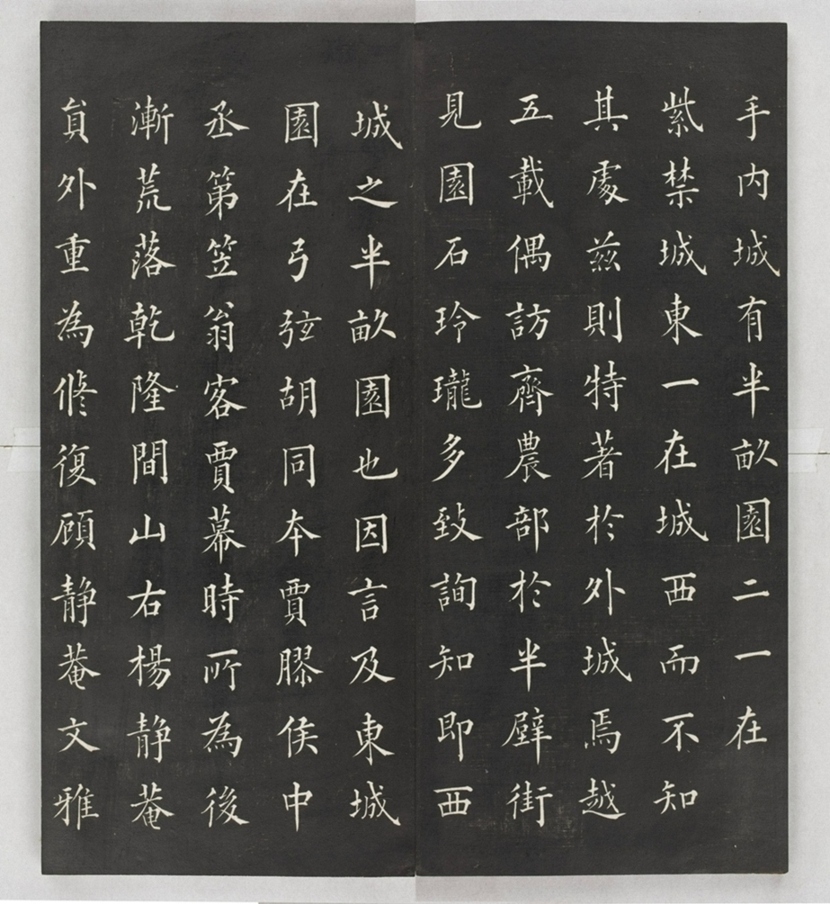 手内城有半畝園二一在
紫禁城東一在城西而不知
其處茲則特著於外城焉越
五載偶訪齊農部於半壁街
見園石玲瓏多致詢知即西
城之半畝園也因言及東城
園在弓弦胡同本賈膠侯中
丞第笠翁客賈幕時所為後
漸荒落乾隆間山右楊静菴
員外重為修復顾静菴文雅